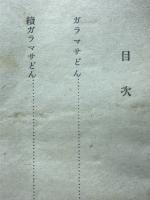 目次
ガラマサどん……………………
続ガラマサどん……………………